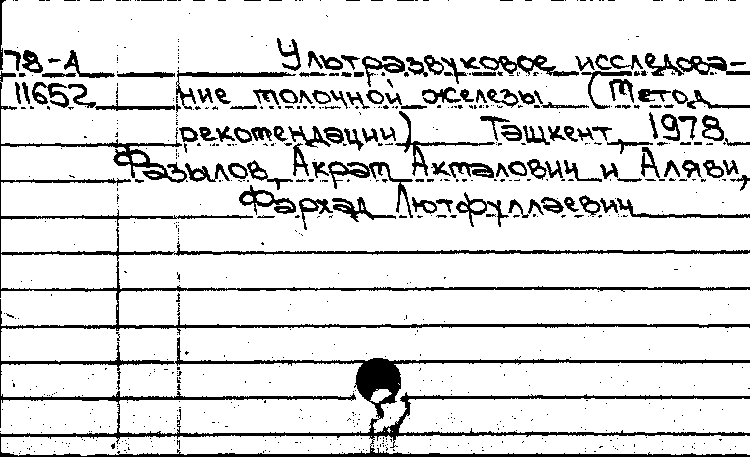 78-А Ультразвуковое исследова-
11652 ние молочной железы. (Метод
рекомендации) Ташкент, 1978
Фазылов, Акрам Акмалович и Аляви,
Фархад Лютфуллаевич